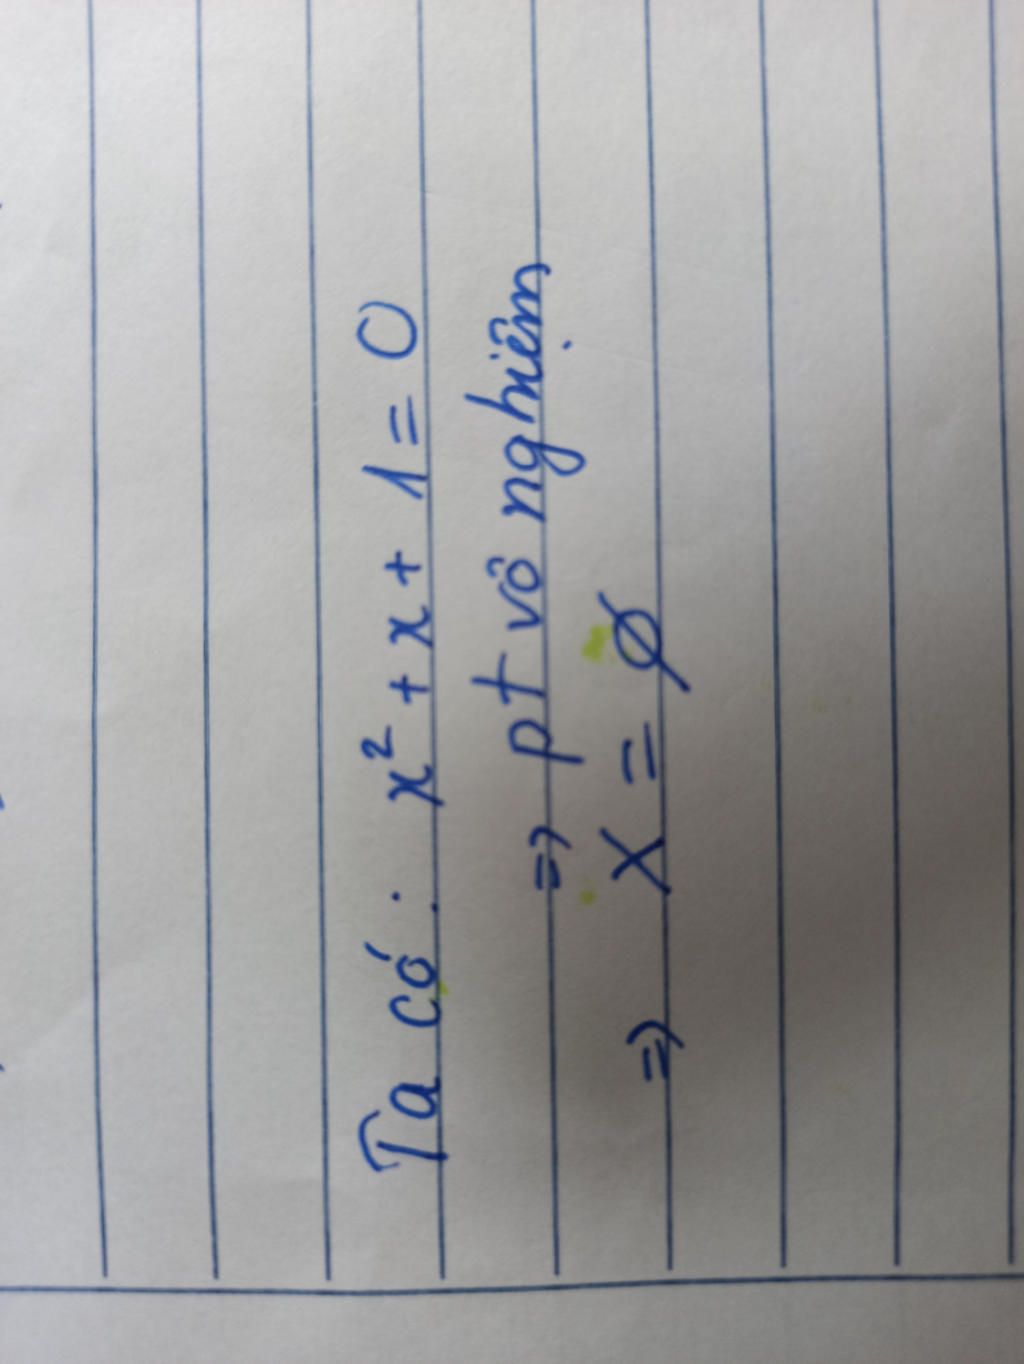 Ta có: x² + x + 1 = 0
=> pt vô nghiệm
=> X = ∅